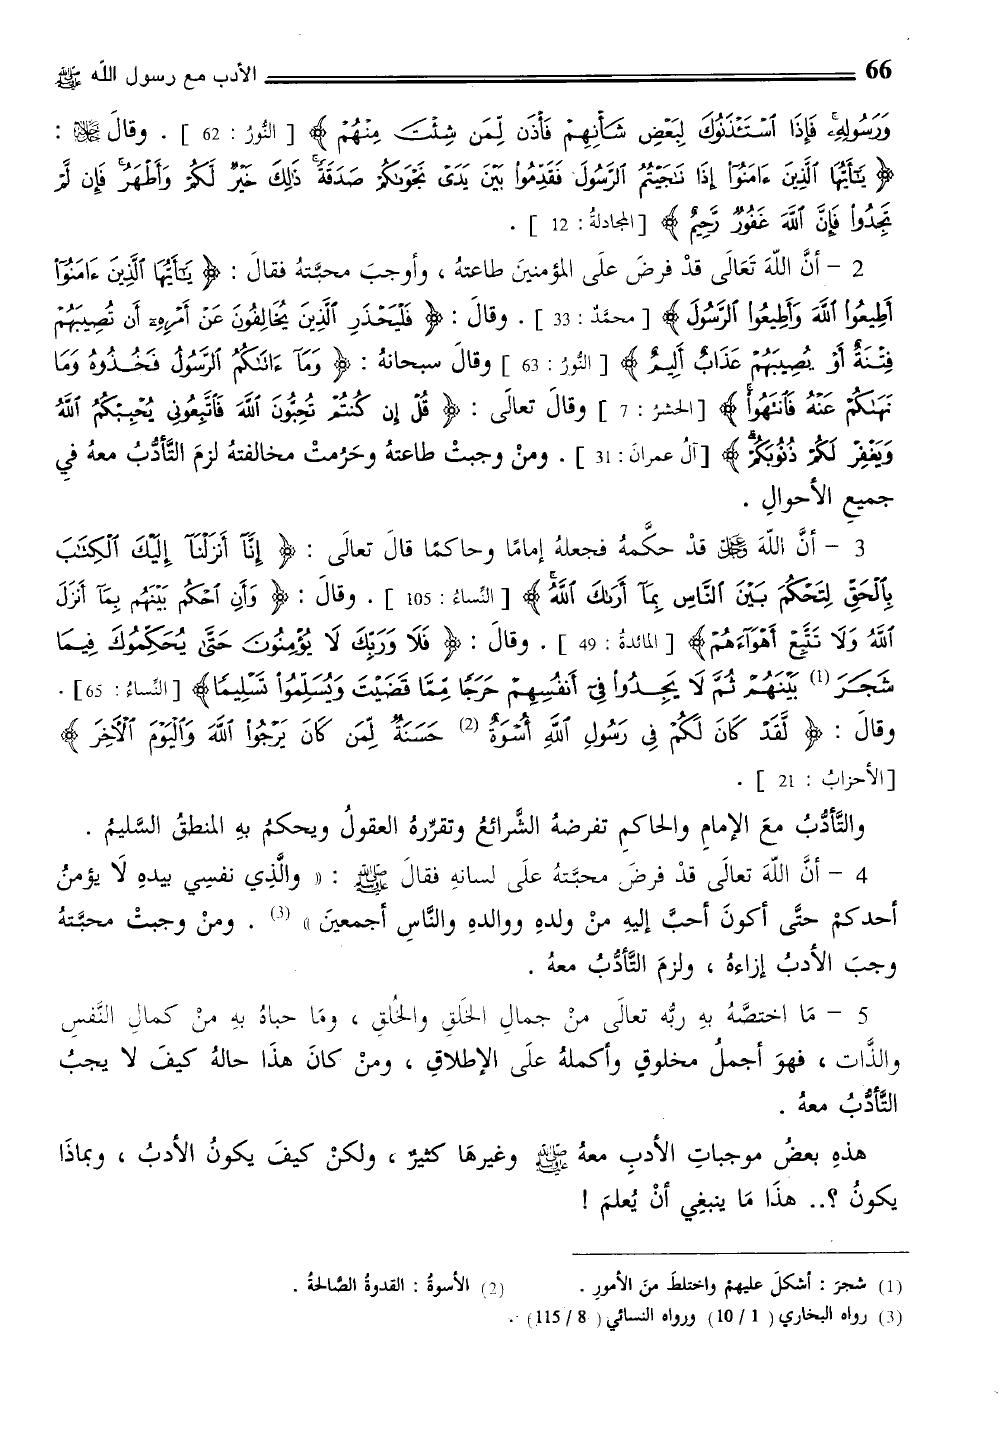 66 الأدب مع رسول الله ﷺ
وَرَسُولِهِۦۚ فَإِذَا ٱسْتَـْٔذَنُوكَ لِبَعْضِ شَأْنِهِمْ فَأْذَن لِّمَن شِئْتَ مِنْهُمْ ﴾ [ النُّورُ : 62 ] . وقالَ ﷻ :
﴿ يَٰٓأَيُّهَا ٱلَّذِينَ ءَامَنُوٓا۟ إِذَا نَٰجَيْتُمُ ٱلرَّسُولَ فَقَدِّمُوا۟ بَيْنَ يَدَىْ نَجْوَىٰكُمْ صَدَقَةًۚ ذَٰلِكَ خَيْرٌ لَّكُمْ وَأَطْهَرُۚ فَإِن لَّمْ
تَجِدُوا۟ فَإِنَّ ٱللَّهَ غَفُورٌ رَّحِيمٌ ﴾ [المجادلةُ : 12 ] .
2 – أنَّ اللّهَ تَعَالَى قدْ فرضَ علَى المؤمنينَ طاعتهُ ، وأوجبَ محبَّتهُ فقالَ : ﴿ يَٰٓأَيُّهَا ٱلَّذِينَ ءَامَنُوٓا۟
أَطِيعُوا۟ ٱللَّهَ وَأَطِيعُوا۟ ٱلرَّسُولَ ﴾ [ محمَّدٌ : 33 ] . وقالَ : ﴿ فَلْيَحْذَرِ ٱلَّذِينَ يُخَالِفُونَ عَنْ أَمْرِهِۦٓ أَن تُصِيبَهُمْ
فِتْنَةٌ أَوْ يُصِيبَهُمْ عَذَابٌ أَلِيمٌ ﴾ [ النُّورُ : 63 ] وقالَ سبحانهُ : ﴿ وَمَآ ءَاتَىٰكُمُ ٱلرَّسُولُ فَخُذُوهُ وَمَا
نَهَىٰكُمْ عَنْهُ فَٱنتَهُوا۟ۚ ﴾ [الحشرُ : 7 ] وقالَ تعالَى : ﴿ قُلْ إِن كُنتُمْ تُحِبُّونَ ٱللَّهَ فَٱتَّبِعُونِى يُحْبِبْكُمُ ٱللَّهُ
وَيَغْفِرْ لَكُمْ ذُنُوبَكُمْۗ ﴾ [آلُ عمرانَ : 31 ] . ومنْ وجبتْ طاعتهُ وحَرُمتْ مخالفتهُ لزمَ التَّأدُّبُ معهُ فِي
جميعِ الأحوالِ .
3 – أنَّ اللّهَ ﷻ قدْ حكَّمهُ فجعلهُ إمامًا وحاكمًا قالَ تعالَى : ﴿ إِنَّآ أَنزَلْنَآ إِلَيْكَ ٱلْكِتَٰبَ
بِٱلْحَقِّ لِتَحْكُمَ بَيْنَ ٱلنَّاسِ بِمَآ أَرَىٰكَ ٱللَّهُۚ ﴾ [ النِّساءُ : 105 ] . وقالَ : ﴿ وَأَنِ ٱحْكُم بَيْنَهُم بِمَآ أَنزَلَ
ٱللَّهُ وَلَا تَتَّبِعْ أَهْوَآءَهُمْ ﴾ [ المائدةُ : 49 ] . وقالَ : ﴿ فَلَا وَرَبِّكَ لَا يُؤْمِنُونَ حَتَّىٰ يُحَكِّمُوكَ فِيمَا
شَجَرَ (1) بَيْنَهُمْ ثُمَّ لَا يَجِدُوا۟ فِىٓ أَنفُسِهِمْ حَرَجًا مِّمَّا قَضَيْتَ وَيُسَلِّمُوا۟ تَسْلِيمًا ﴾ [ النِّساءُ : 65] .
وقالَ : ﴿ لَّقَدْ كَانَ لَكُمْ فِى رَسُولِ ٱللَّهِ أُسْوَةٌ (2) حَسَنَةٌ لِّمَن كَانَ يَرْجُوا۟ ٱللَّهَ وَٱلْيَوْمَ ٱلْـَٔاخِرَ ﴾
[الأحزابُ : 21 ] .
والتَّأدُّبُ معَ الإمامِ والحاكمِ تفرضهُ الشَّرائعُ وتقرِّرهُ العقولُ ويحكمُ بهِ المنطقُ السَّليمُ .
4 – أنَّ اللّهَ تعالَى قدْ فرضَ محبَّتهُ علَى لسانهِ فقالَ ﷺ : « والَّذِي نفسِي بيدهِ لَا يؤمنُ
أحدكمْ حتَّى أكونَ أحبَّ إليهِ منْ ولدهِ ووالدهِ والنَّاسِ أجمعينَ » (3) . ومنْ وجبتْ محبَّتهُ
وجبَ الأدبُ إزاءهُ ، ولزمَ التَّأدُّبُ معهُ .
5 – مَا اختصَّهُ بهِ ربُّه تعالَى منْ جمالِ الخَلقِ والخُلقِ ، ومَا حباهُ بهِ منْ كمالِ النَّفسِ
والذَّات ، فهوَ أجملُ مخلوقٍ وأكملهُ علَى الإطلاقِ ، ومنْ كانَ هذَا حالهُ كيفَ لا يجبُ
التَّأدُّبُ معهُ .
هذهِ بعضُ موجباتِ الأدبِ معهُ ﷺ وغيرهَا كثيرٌ ، ولكنْ كيفَ يكونُ الأدبُ ، وبماذَا
يكونُ ؟.. هذَا مَا ينبغِي أنْ يُعلمَ !
(1) شجرَ : أشكلَ عليهمْ واختلطَ منَ الأمورِ . (2) الأسوةُ : القدوةُ الصَّالحةُ .
(3) رواه البخاري ( 1 / 10) ورواه النسائي ( 8 / 115) .